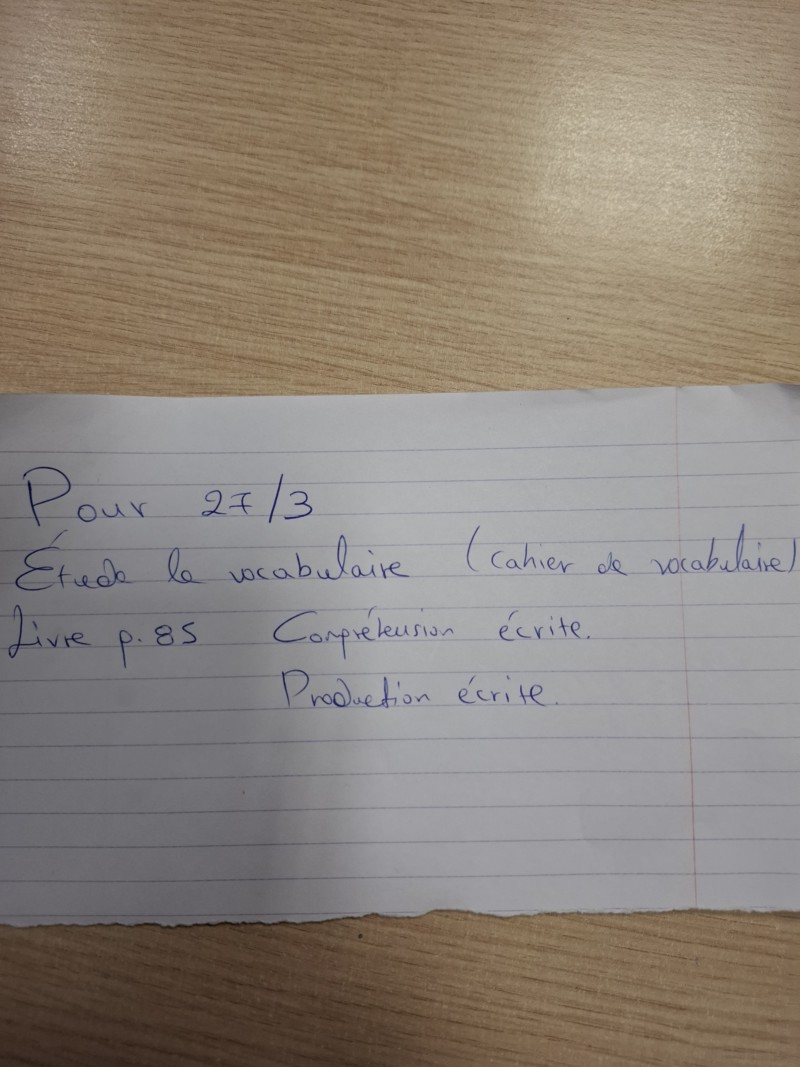 Pour 27/3
Étude le vocabulaire (cahier de vocabulaire)
Livre p. 85 Compréhension écrite.
Production écrite.